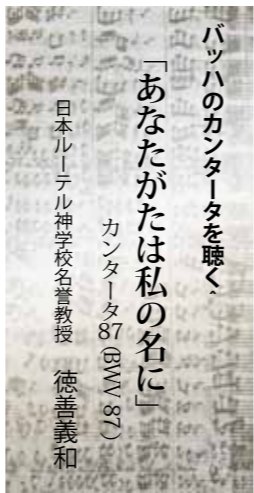 バッハのカンタータを聴く
「あなたがたは私の名に」
カンタータ87(BWV 87)
日本ルーテル神学校名誉教授 徳善義和